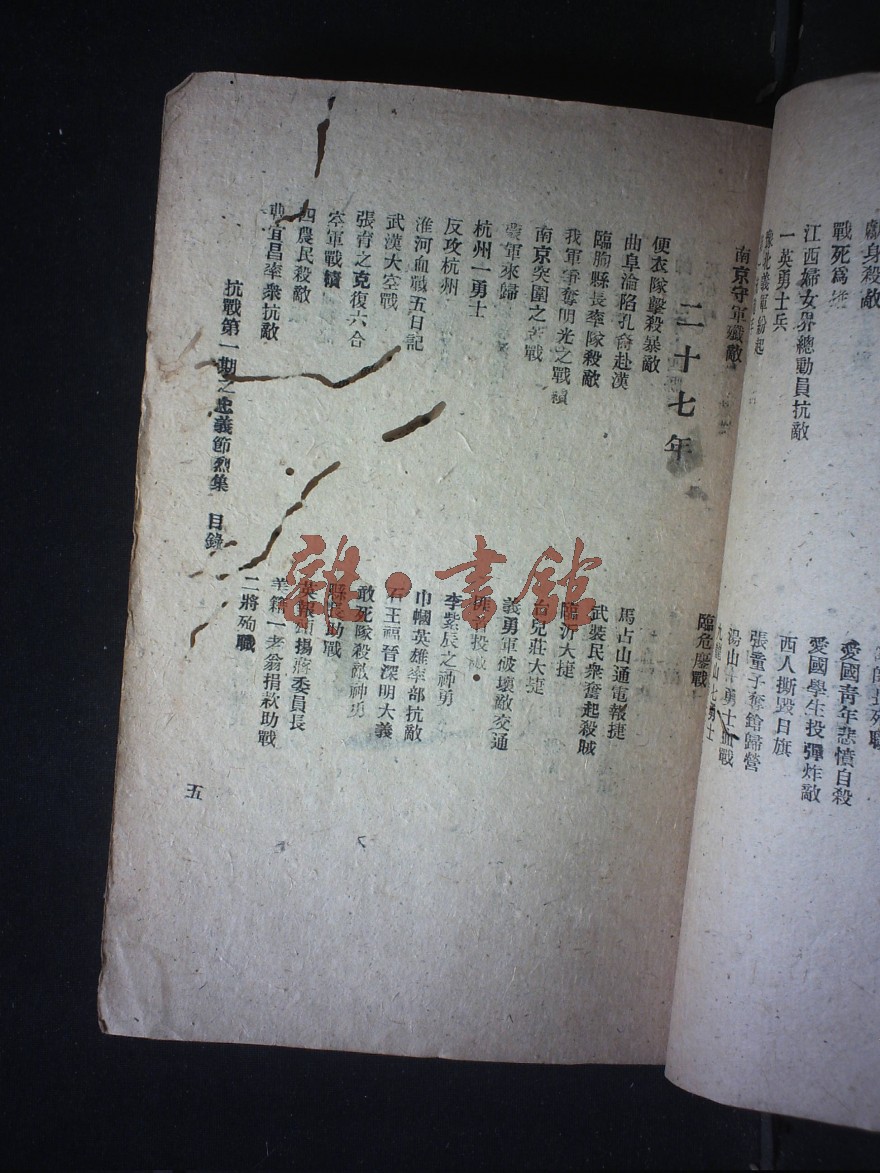 獻身殺敵
戰死為
江西婦女界總動員抗敵
一英勇士兵
豫北義軍紛起
南京守軍殲敵
殉職
愛國青年悲憤自殺
愛國學生投彈炸敵
西人撕毀日旗
張童子奪鎗歸營
湯山 勇士血戰
九龍山七勇士
臨危鏖戰
二十七年
便衣隊擊殺暴敵
曲阜淪陷孔裔赴漢
臨朐縣長率隊殺敵
我軍爭奪明光之戰績
南京突圍之苦戰
軍來歸
杭州一勇士
反攻杭州
淮河血戰五日記
武漢大空戰
張青之克復六合
空軍戰績
四農民殺敵
宜昌率衆抗敵
馬占山通電報捷
武裝民衆奮起殺賊
臨沂大捷
台兒莊大捷
義勇軍破壞敵交通
投
李紫辰之神勇
巾幗英雄率部抗敵
石王福晉深明大義
敢死隊殺敵神勇
縣長助戰
英報頌揚蔣委員長
美籍一老翁捐款助戰
二將殉職
抗戰第一期之忠義節烈集 目錄
五
雜·書館